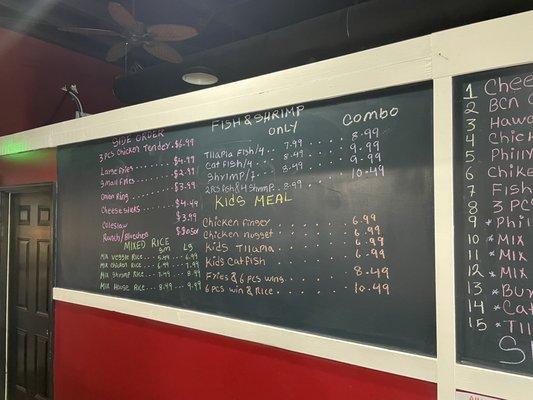 SIDE ORDER
3 pcs Chicken Tender. $6.99
Large Fries $4.99
Small Fries $2.99
Onion Ring $3.99
Cheesesticks $4.49
Coleslaw $3.99
Ranch/
MIXED RICE
SM LG
Mix Veggie Rice 5.49 6.99
Mix Chicken Rice 6.99 7.99
Mix Shrimp Rice 7.49 8.99
Mix House Rice 8.49 9.99
FISH & SHRIMP
ONLY COMBO
Tilapia Fish/4 7.99 8.99
Cat Fish/4 8.49 9.99
Shrimp/7 8.49 9.99
2 pcs Fish & 4 Shrimp 8.99 10.49
KIDS MEAL
Chicken Finger 6.99
Chicken Nugget 6.99
Kids Tilapia 6.99
Kids Catfish 6.99
Fries & 6 pcs Wing 8.49
6 pcs Win & Rice 10.49
1 Chee
2 BCN
3 Hawa
4 Chick
5 Philly
6 Chike
7 Fish
8 3 pc
9 * Phil
10 * Mix
11 * Mix
12 * Mix
13 * Bu
14 * Cat
15 * Tila